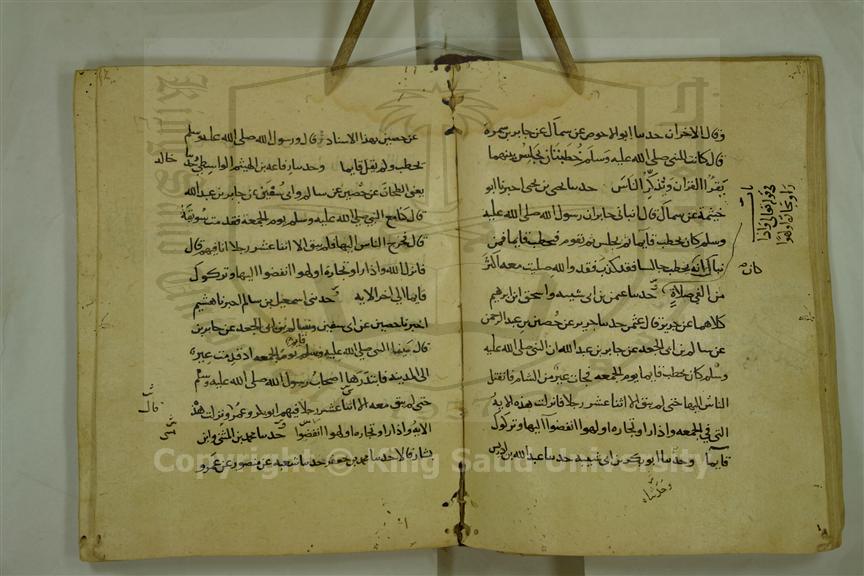 وقال الاخران حدسا ابو الاحوص عن سماك عن جابر بن سمرة
قال كانت للنبي صلى الله عليه وسلم خطبتان يجلس بينهما
يقرا القران ويذكر الناس حدسا يحيى بن يحيى اخبرنا ابو
خيثمة عن سماك قال انباني جابر ان رسول الله صلى الله عليه
وسلم كان يخطب قايما ثم يجلس ثم يقوم فيخطب قايما فمن
نباك انه يخطب جالسا فقد كذب فقد والله صليت معه اكثر
من الفي صلاة حدسا عثمن بن ابي شيبه واسحق بن ابرهيم
كلاهما عن جرير قال عثمن حدسا جرير عن حصين بن عبد الرحمن
عن سالم بن ابي الجعد عن جابر بن عبد الله ان النبي صلى الله عليه
وسلم كان يخطب قايما يوم الجمعه فجات عير من الشام فانفتل
الناس اليها حتى لم يبق الا اثنا عشر رجلا فانزلت هذه الايه
التي في الجمعه واذا راو تجاره او لهوا انفضوا اليها وتركوك
قايما وحدسا ابو بكر بن ابي شيبه حدسا عبد الله بن ادريس
وحدثناه
باب
في قوله تعالى واذا
راو تجارة او لهوا
كان
عن حصين بهذا الاسناد قال ورسول الله صلى الله عليه وسلم
يخطب ولم يقل قايما وحدسا رفاعه بن الهيثم الواسطي حدسا خالد
يعني الطحان عن حصين عن سالم وابي سفين عن جابر بن عبد الله
قال كنا مع النبي صلى الله عليه وسلم يوم الجمعه فقدمت سويقة
قال فخرج الناس اليها فلم يبق الا اثنا عشر رجلا انا فيهم قال
فانزل الله واذا راو تجارة او لهوا انفضوا اليها وتركوك
قايما الى اخر الايه وحدثني اسمعيل بن سالم اخبرنا هشيم
اخبرنا حصين عن ابي سفين وسالم بن ابي الجعد عن جابر بن
قال بينا النبي صلى الله عليه وسلم قايم يوم الجمعه اذ قدمت عير
الى المدينه فابتدرها اصحاب رسول الله صلى الله عليه وسلم
حتى لم يبق معه الا اثنا عشر رجلا فيهم ابو بكر وعمر ونزلت هذه
الايه واذا راو تجاره او لهوا انفضوا وحدسا محمد بن المثنى وابن
بشار قالا حدسا محمد بن جعفر حدسا شعبه عن منصور عن عمرو
قال
Copyright © King Saud University